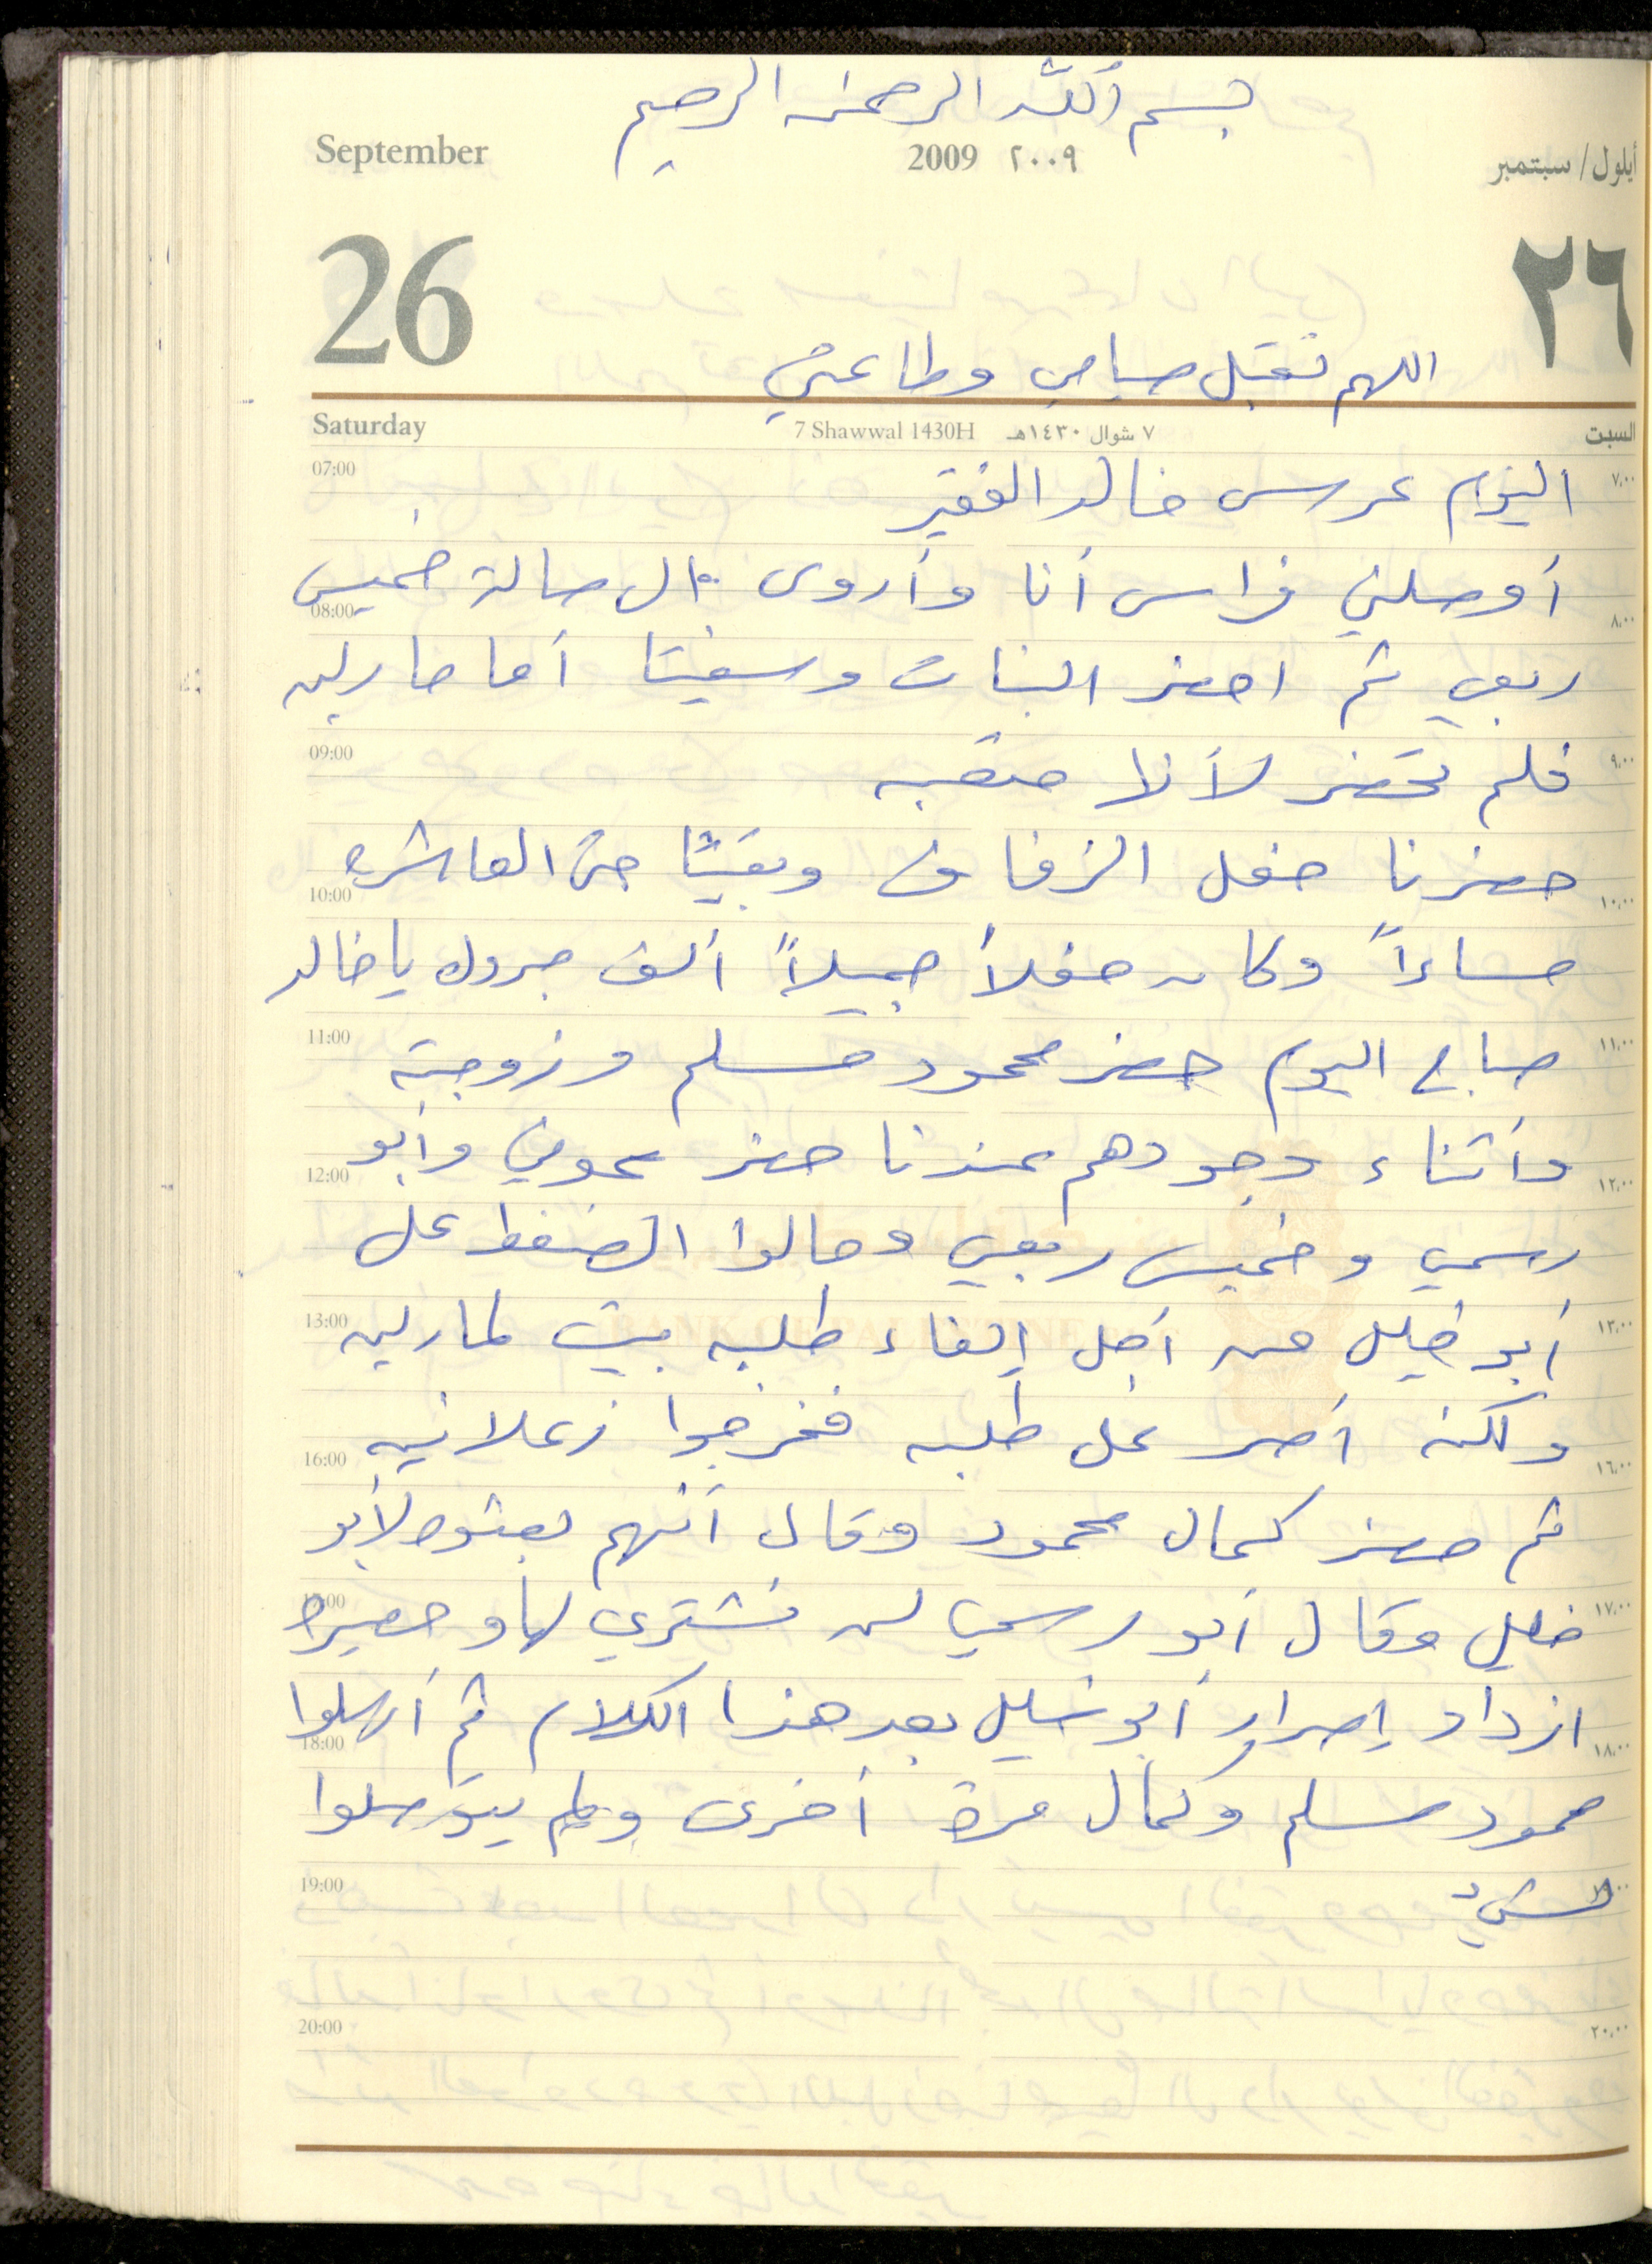 بسم الله الرحمن الرحيم
September 2009 ٢٠٠٩ أيلول/سبتمبر
26 ٢٦
اللهم تقبل صيامي وطاعتي
Saturday 7 Shawwal 1430H ٧ شوال ١٤٣٠هـ السبت
07:00 اليوم عرس خالد الفقير ٧,٠٠
أوصلني فراس أنا وأروى الى صالة خميس
08:00 ٨,٠٠
ربعي ثم احضر البنات وسفيتا أما مارلين
09:00 فلم تحضر لأنها متعبه ٩,٠٠
حضرنا حفل الزفاف وبقينا حتى العاشره
10:00 ١٠,٠٠
مساءاً وكان حفلاً جميلاً ألف مبروك يا خالد
11:00 صباح اليوم حضر محمود مسلم وزوجته ١١,٠٠
وأثناء وجودهم عندنا حضر عوني وأبو
12:00 ١٢,٠٠
رسمي وخميس ربعي وحالوا الضغط على
BANK OF PALESTINE
13:00 أبو خليل من أجل إلغاء طلبه بيت لمارلين ١٣,٠٠
ولكنه أصر على طلبه فخرجوا زعلانين
16:00 ١٦,٠٠
ثم حضر كمال محمود وقال أنهم بعثوه لأبو
17:00 خليل وقال أبو رسمي لن نشتري لها و حصيرة ١٧,٠٠
ازداد إصرار أبو خليل بعد هذا الكلام ثم أرسلوا
18:00 ١٨,٠٠
محمود مسلم وكمال مرة أخرى ولم يتوصلوا
19:00 لشيء
20:00 ٢٠,٠٠